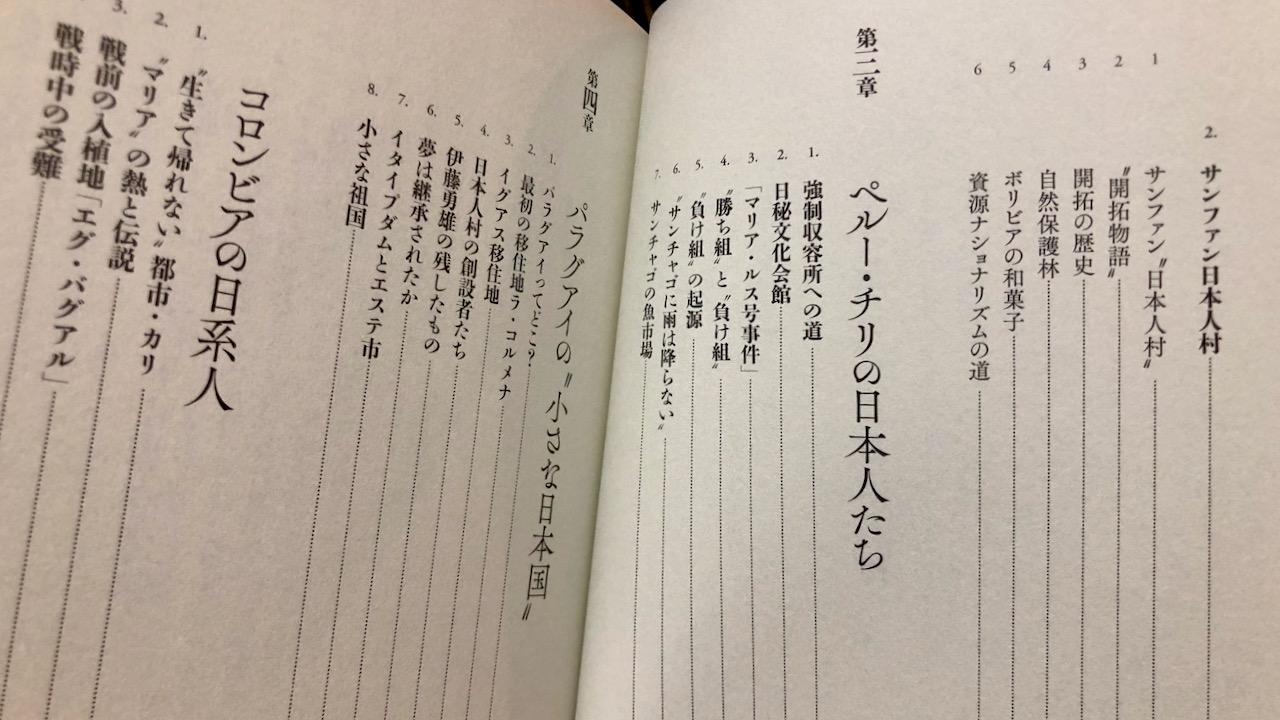 2. サンファン日本人村
1 サンファン〝日本人村〟
2 〝開拓物語〟
3 開拓の歴史
4 自然保護林
5 ボリビアの和菓子
6 資源ナショナリズムの道
第三章 ペルー・チリの日本人たち
1. 強制収容所への道
2. 日秘文化会館
3. 「マリア・ルス号事件」
4. 〝勝ち組〟と〝負け組〟
5. 〝負け組〟の起源
6. 〝サンチャゴに雨は降らない〟
7. サンチャゴの魚市場
第四章 パラグアイの〝小さな日本国〟
1. パラグアイってどこ?
2. 最初の移住地ラ・コルメナ
3. イグアス移住地
4. 日本人村の創設者たち
5. 伊藤勇雄の残したもの
6. 夢は継承されたか
7. イタイプダムとエステ市
8. 小さな祖国
コロンビアの日系人
1. 〝生きて帰れない〟都市・カリ
2. 〝マリア〟の熱と伝説
3. 戦前の入植地「エグ・バグアル」
戦時中の受難